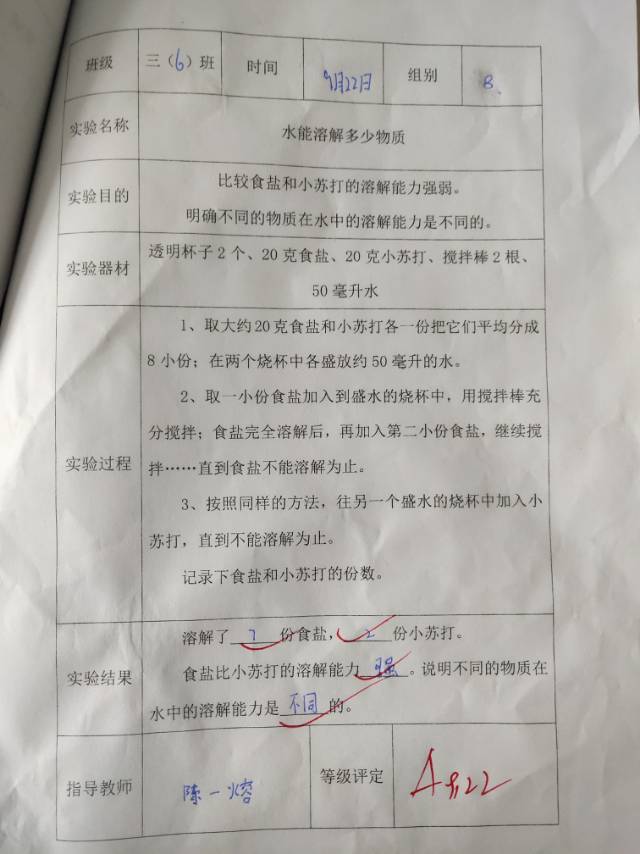 班级 三（6）班 时间 9月22日 组别 8、
实验名称 水能溶解多少物质
实验目的 比较食盐和小苏打的溶解能力强弱。
明确不同的物质在水中的溶解能力是不同的。
实验器材 透明杯子2个、20克食盐、20克小苏打、搅拌棒2根、
50毫升水
实验过程
1、取大约20克食盐和小苏打各一份把它们平均分成
8小份；在两个烧杯中各盛放约50毫升的水。
2、取一小份食盐加入到盛水的烧杯中，用搅拌棒充
分搅拌；食盐完全溶解后，再加入第二小份食盐，继续搅
拌……直到食盐不能溶解为止。
3、按照同样的方法，往另一个盛水的烧杯中加入小
苏打，直到不能溶解为止。
记录下食盐和小苏打的份数。
实验结果
溶解了 7 份食盐， 2 份小苏打。
食盐比小苏打的溶解能力 强 。说明不同的物质在
水中的溶解能力是 不同 的。
指导教师 陈一熔 等级评定 A 9.22